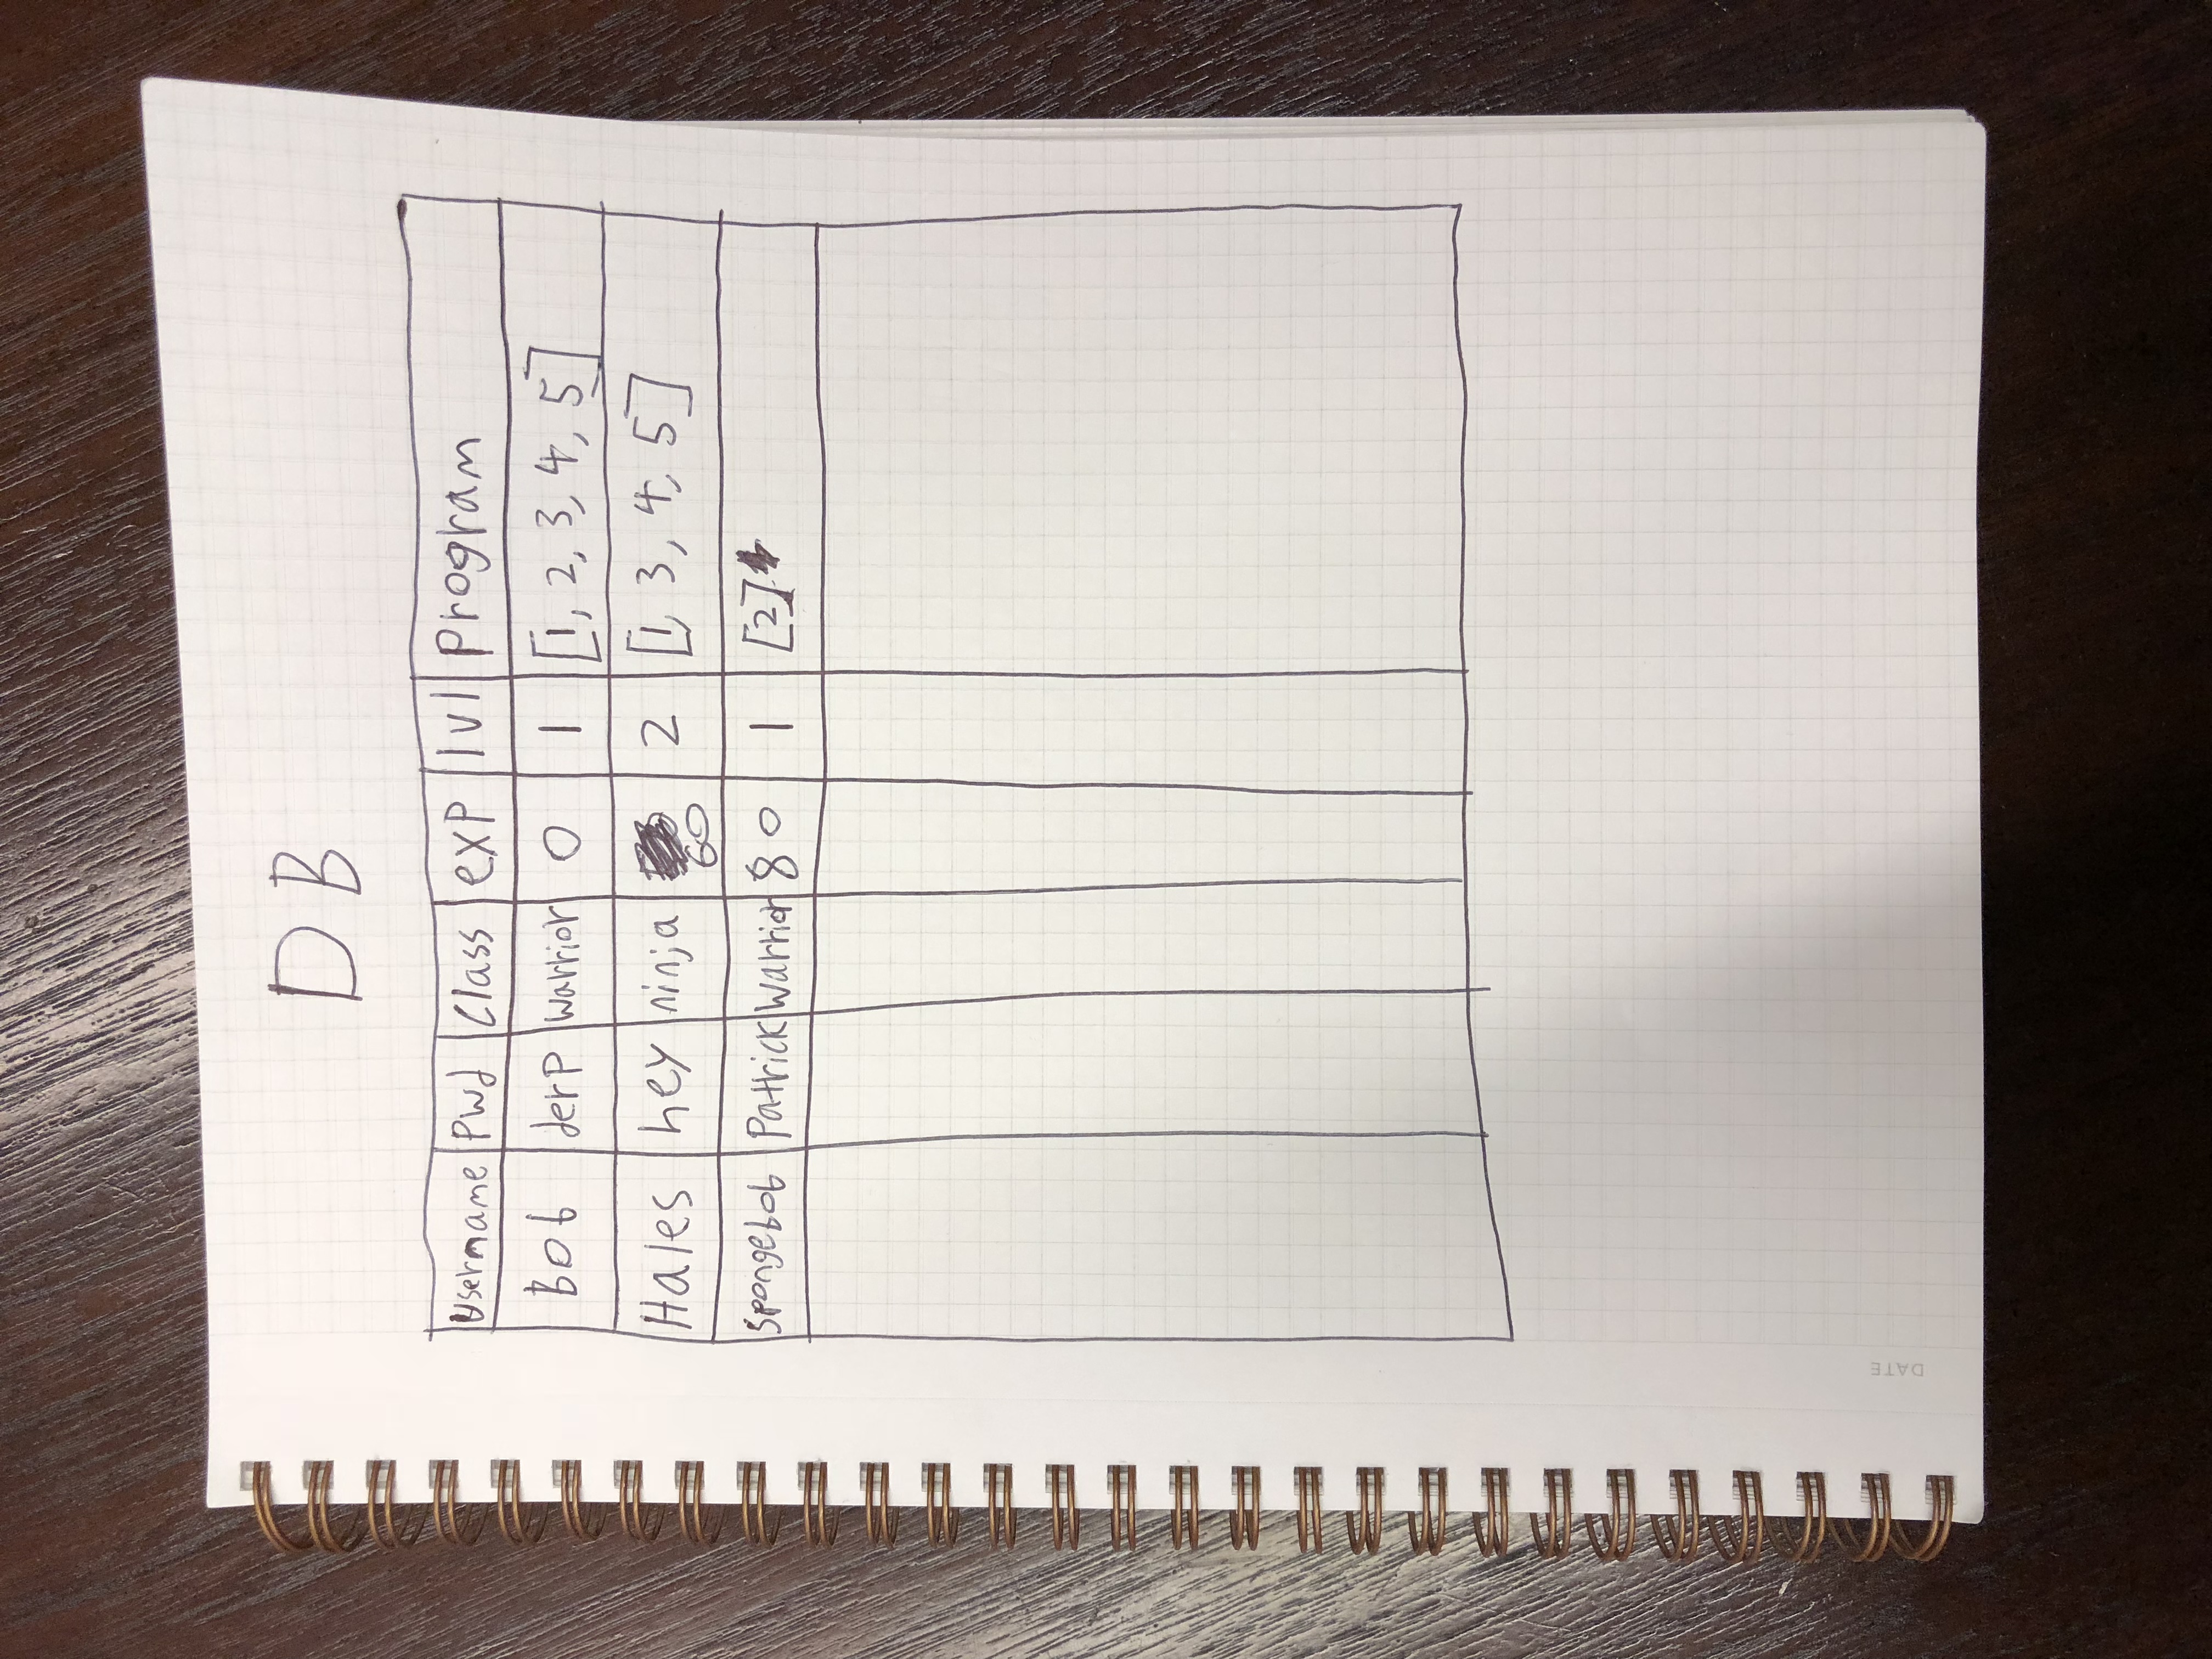 DB
Username Pwd Class exp lvl Program
Bob derp warrior 0 1 [1, 2, 3, 4, 5]
Hales hey ninja 60 2 [1, 3, 4, 5]
Spongebob Patrick Warrior 80 1 [2]
DATE